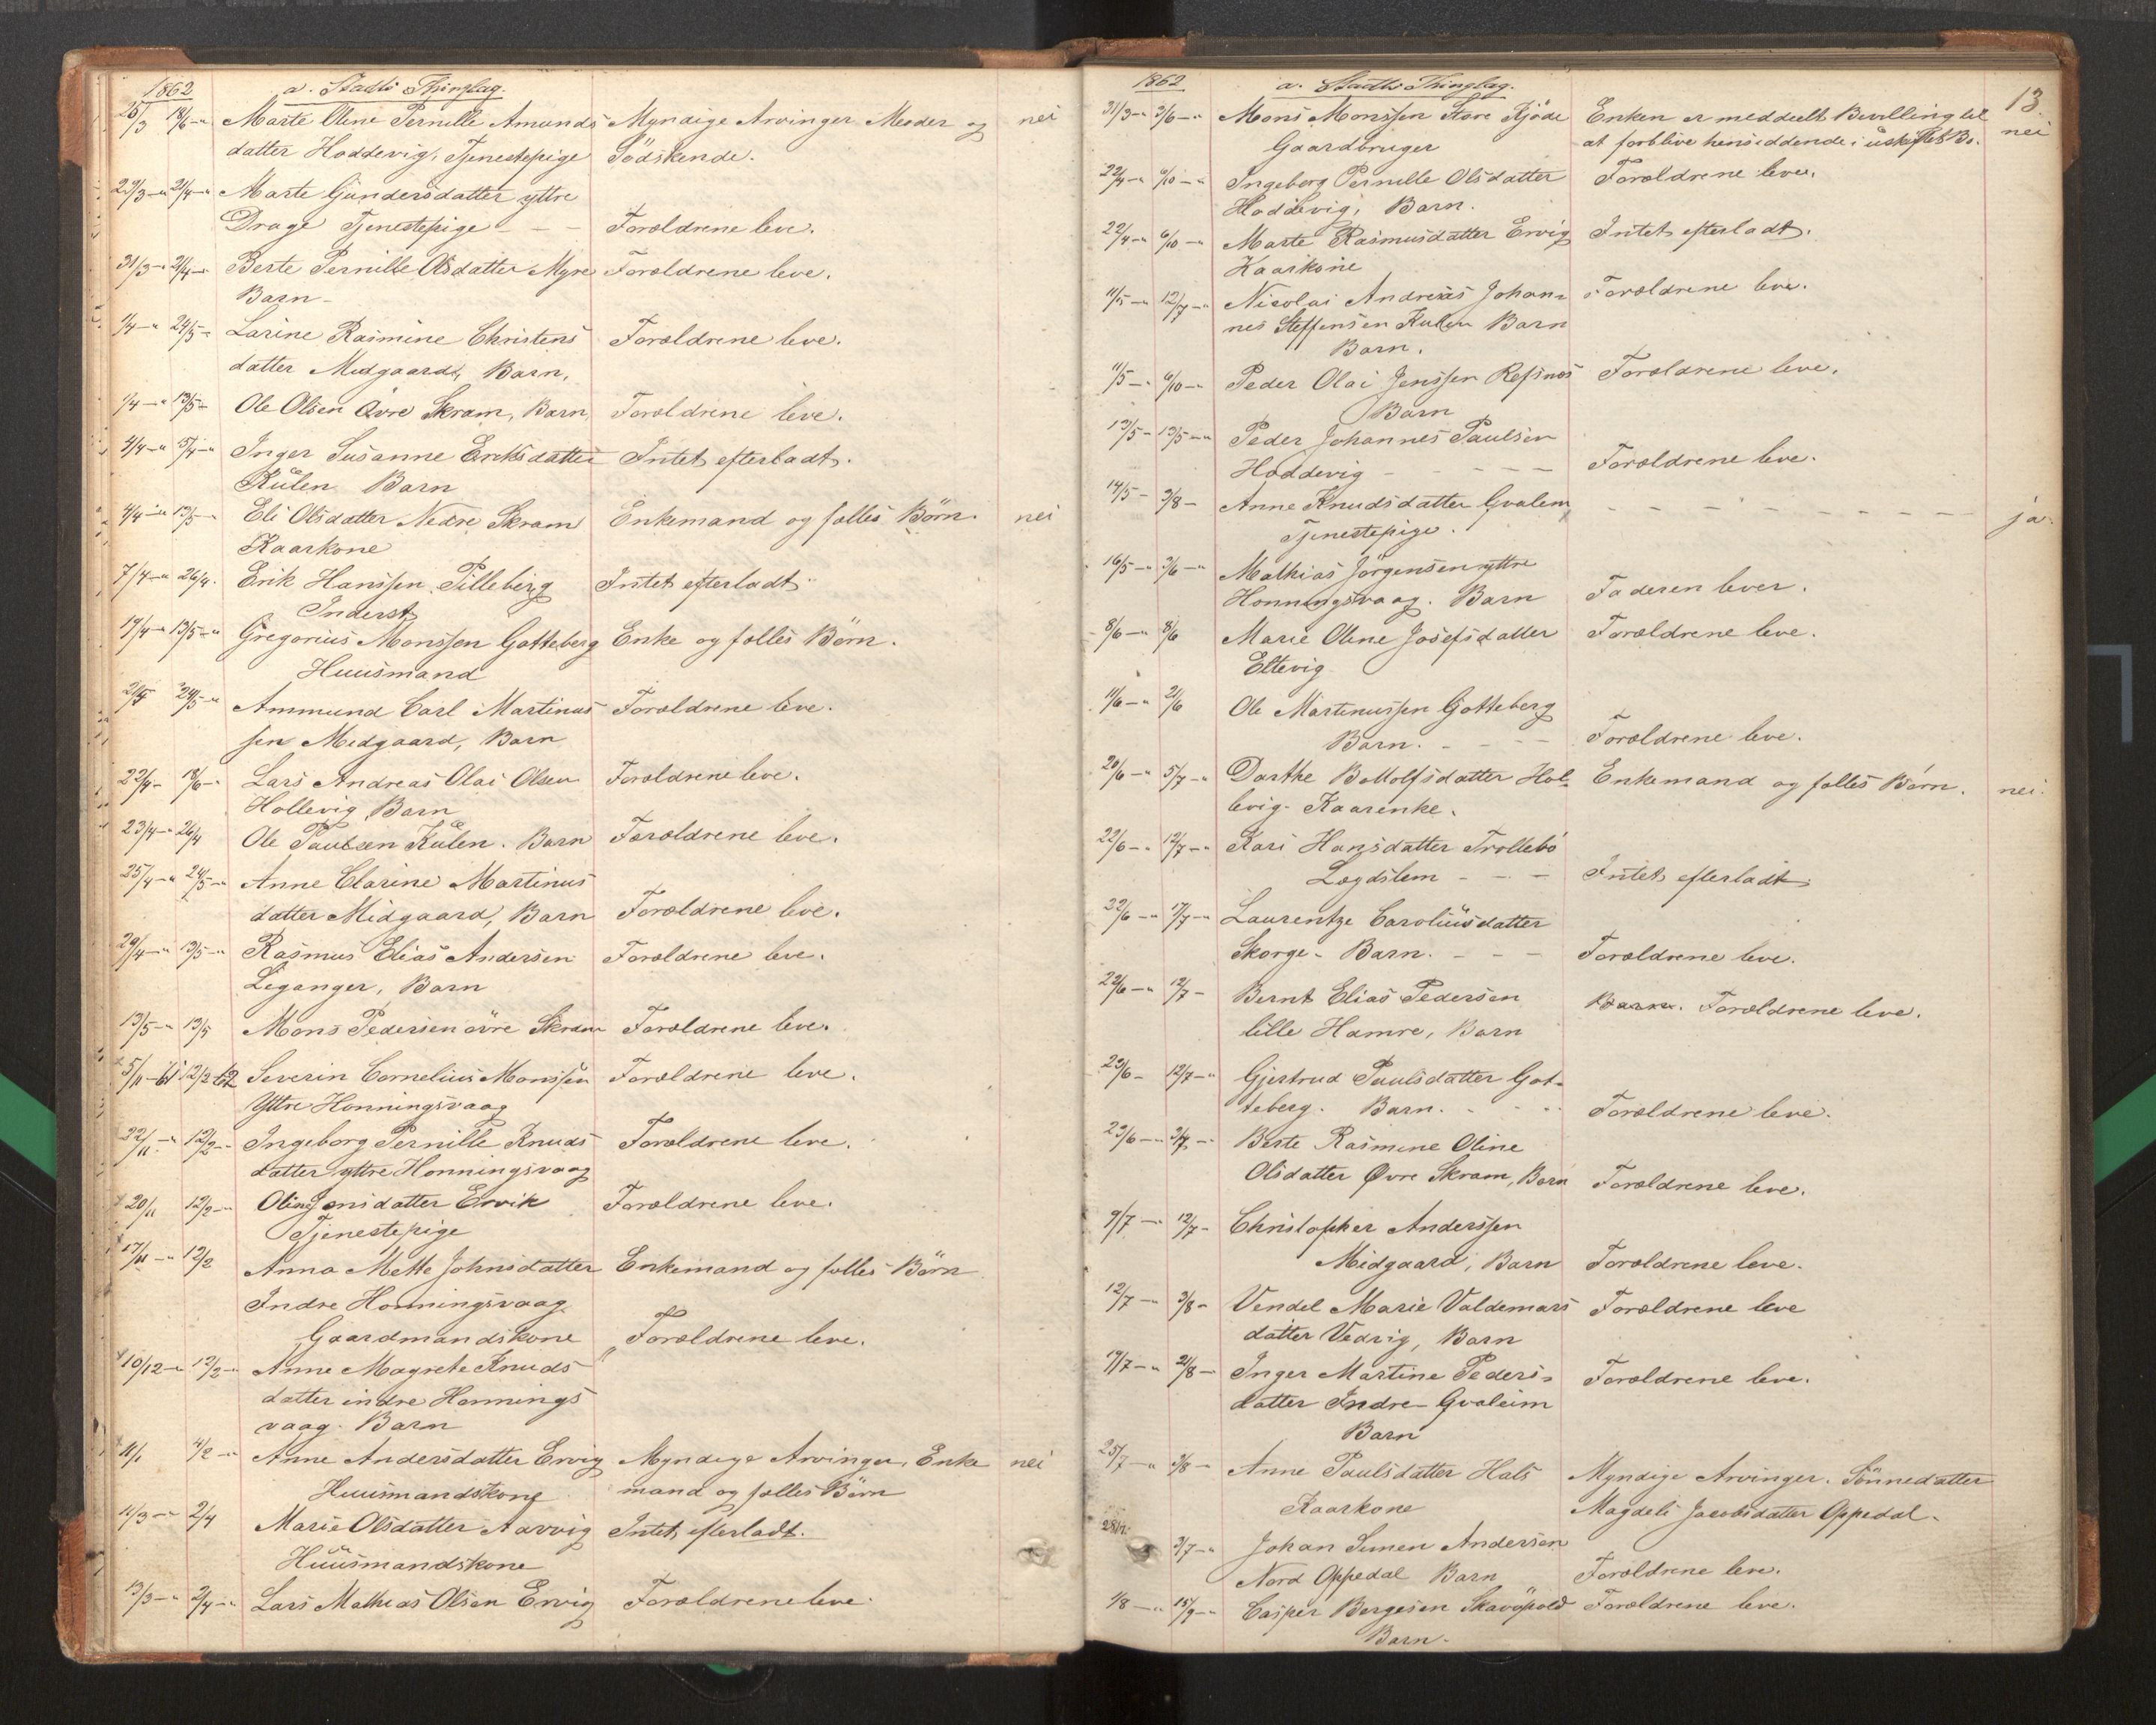 1862 a. Stadts Thinglag.
25/3 18/6 -" Marte Oline Pernille Amunds Myndige Arvinger Moder og nei
datter Hoddevig, Tjenestepige Södskende.
22/3 -" 2/4 -" Marte Gundersdatter yttre
Drage Tjenestepige - - - Forældrene leve.
31/3 -" 2/4 -" Berte Pernille Olsdatter Myre Forældrene leve.
Barn -
1/4 -" 24/5 - Larine Rasmine Christens Forældrene leve.
datter Midgaard, Barn,
1/4 -" 13/5 - Ole Olsen Övre Skram, Barn, Forældrene leve.
4/4 -" 5/4 -" Inger Susanne Eriksdatter Intet efterladt.
Kulen Barn
4/4 -" 13/5 - Eli Olsdatter Nedre Skram Enkemand og fælles Börn. nei
Kaarkone
7/4 -" 26/4. Erik Hanssen Pilleberg Intet efterladt
Inderst
19/4 -" 13/5 -" Gregorius Monssen Gotteberg Enke og fælles Börn.
Huusmand
24/5 -" Ammund Carl Martinus Forældrene leve.
sen Midgaard, Barn
22/4 - 18/6 - Lars Andreas Olai Olsen Forældrene leve.
Hollevig Barn
23/4 -" 26/4 Ole Paulsen Kulen. Barn Forældrene leve.
25/4 -" 24/5 -" Anne Clarine Martinus
datter Midgaard, Barn Forældrene leve.
29/4 -" 13/5 -" Rasmus Elias Andersen Forældrene leve.
Leganger, Barn
13/5 -" 13/5 Mons Pedersen övre Skram Forældrene leve.
5/11 - 61 12/2 - 62 Severin Cornelius Monssen Forældrene leve.
Yttre Honningsvaag
22/11 -" 12/2 - Ingeborg Pernille Knuds Forældrene leve.
datter yttre Honningsvaag
20/11 12/2 -" Oline Jonsdatter Ervik Forældrene leve.
Tjenestepige
17/11 -" 12/2 Anna Mette Johnsdatter Enkemand og fælles Börn
Indre Honningsvaag
Gaardmandskone Forældrene leve.
10/12 -" 12/2 -" Anne Magrete Knuds "
datter indre Honnings
vaag. Barn
11/1 4/2 -" Anne Andersdatter Ervig Myndige Arvinger, Enke nei
Huusmandskone mand og fælles Börn
11/3 -" 2/4 Marie Olsdatter Aarvig Intet efterladt.
Huusmandskone
13/3 -" 2/4 -" Lars Mathias Olsen Ervig Forældrene leve.
13.
1862 a. Stadts Thinglag.
31/3 -" 3/6 -" Mons Monssen Store Fjöde Enken er meddeelt Bevilling til
Gaardbruger at forblive hensiddende i uskiftet Bo. nei
22/4 -" 6/10 -" Ingeborg Pernille Olsdatter Forældrene leve.
Hoddevig, Barn.
22/4 -" 6/10 -" Marte Rasmusdatter Ervig Intet efterladt.
Kaarkone
11/5 -" 12/7 -" Nicolai Andreas Johan- Forældrene leve.
nes Steffensen Kulen Barn
Barn.
11/5 -" 6/10 -" Peder Olai Jenssen Refsnes Forældrene leve.
Barn
13/5 - 13/5 -" Peder Johannes Paulsen
Hoddevig - - - - - Forældrene leve.
14/5 - 3/8 - Anne Knudsdatter Gvalem - - - - - - - - - ja.
Tjenestepige.
16/5 -" 3/6 -" Mathias Jörgensen yttre
Honningsvaag. Barn Faderen lever.
8/6 -" 8/6 Marie Oline Josefsdatter Forældrene leve.
Eltevig
11/6 -" 21/6 Ole Martinussen Gotteberg
Barn. - - - - Forældrene leve.
20/6 -" 5/7 -" Dorthe Bottolfsdatter Hol- Enkemand og fælles Börn. nei.
levig. Kaarenke.
22/6 -" 12/7 -" Kari Hansdatter Trollebö
Lægdslem - - - Intet efterladt
22/6 -" 17/7 -" Laurentze Caroliusdatter
Skorge. Barn. - - - Forældrene leve.
22/6 -" 12/7 - Bernt Elias Pedersen Barn. Forældrene leve.
lille Hamre, Barn
23/6 - 12/7 -" Gjertrud Paulsdatter Got-
teberg. Barn. - - - Forældrene leve.
23/6 -" 3/7 -" Berte Rasmine Oline
Olsdatter Øvre Skram, Barn Forældrene leve.
9/7 -" 12/7 - Christopher Anderssen
Midgaard, Barn Forældrene leve.
12/7 -" 3/8 - Vendel Marie Valdemars Forældrene leve
datter Vedvig, Barn
19/7 -" 21/8 - Inger Martine Peders- Forældrene leve.
datter Indre Gvaleim
Barn
25/7 -" 3/8 - Anne Paulsdatter Hals Myndige Arvinger. Sönnedatter
Kaarkone Magdeli Jacobsdatter Oppedal.
3/7 -" Johan Simen Andersen
Nord Oppedal Barn Forældrene leve.
1/8 -" 15/9 -" Casper Börgesen Skavöpold Forældrene leve.
Barn.